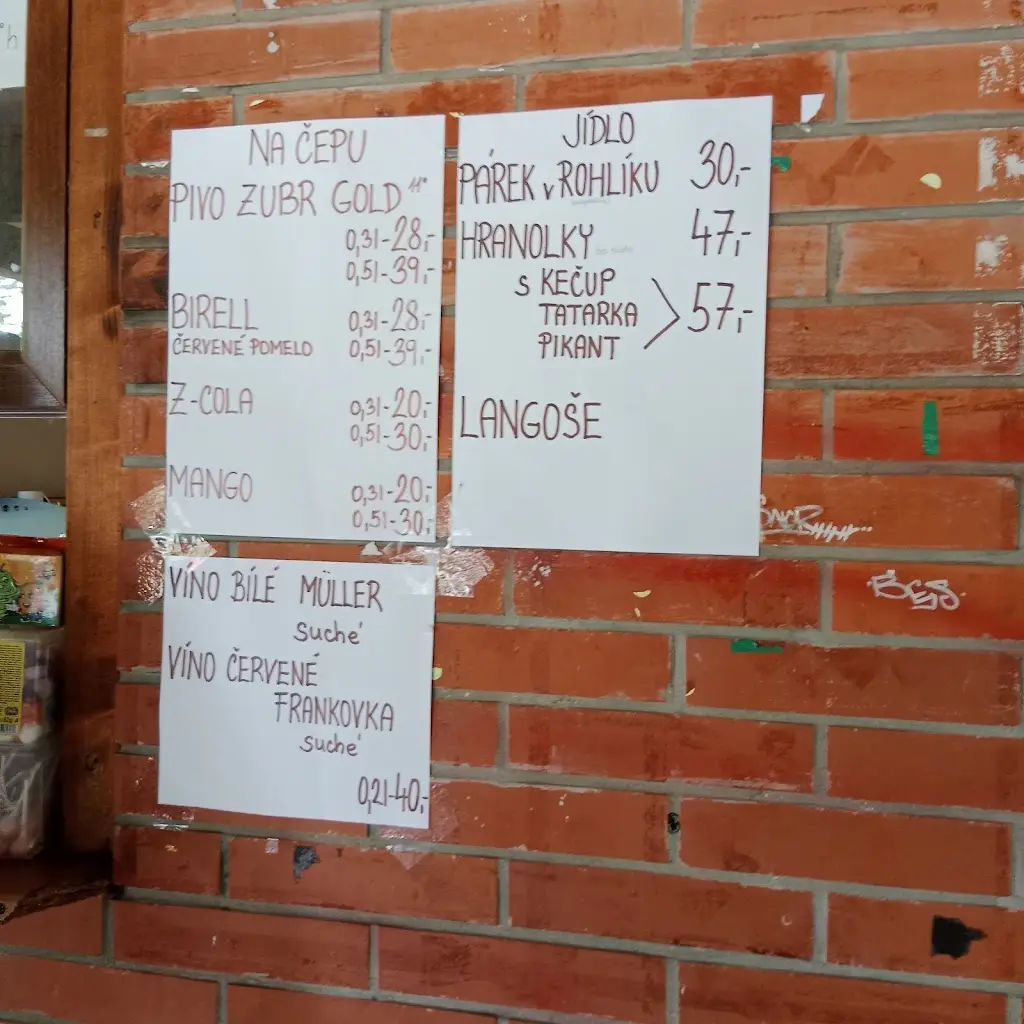 NA ČEPU
PIVO ZUBR GOLD 11°
0,3l-28,-
0,5l-39,-
BIRELL 0,3l-28,-
ČERVENÉ POMELO 0,5l-39,-
Z-COLA 0,3l-20,-
0,5l-30,-
MANGO 0,3l-20,-
0,5l-30,-
JÍDLO
PÁREK v ROHLÍKU 30,-
HRANOLKY 47,-
S KEČUP
TATARKA 57,-
PIKANT
LANGOŠE
VÍNO BÍLÉ MÜLLER
suché
VÍNO ČERVENÉ
FRANKOVKA
suché
0,2l-40,-